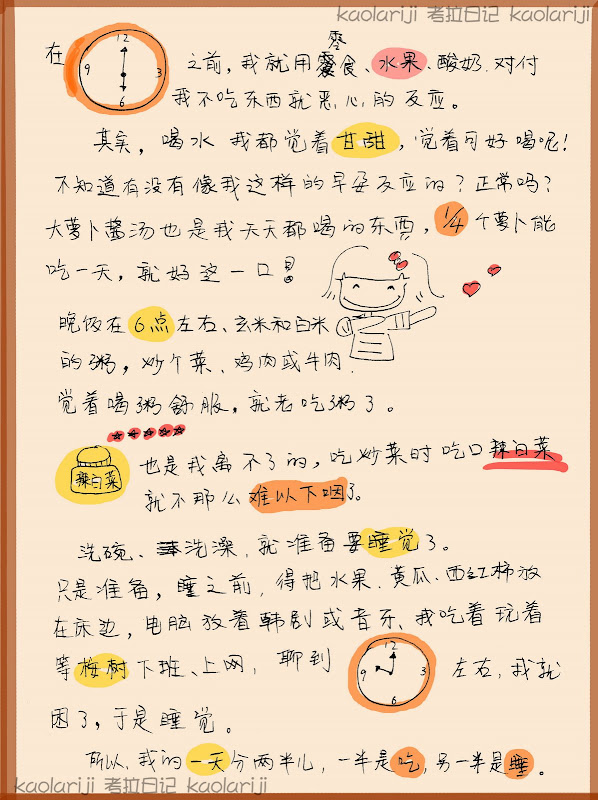 kaolariji 考拉日记 kaolariji
在 12 3 6 9 之前,我就用零食、水果、酸奶.对付
我不吃东西就恶心的反应。
其实,喝水 我都觉着甘甜,觉着可好喝呢!
不知道有没有像我这样的早孕反应的?正常吗?
大萝卜酱汤也是我天天都喝的东西,1/4个萝卜能
吃一天,就好这一口!
晚饭在6点左右、玄米和白米
的粥,炒个菜、鸡肉或牛肉.
觉着喝粥舒服,就老吃粥了。
辣白菜 也是我离不了的,吃炒菜时吃口辣白菜
就不那么难以下咽了。
洗碗、洗澡,就准备要睡觉了。
只是准备,睡之前,得把水果.黄瓜、西红柿放
在床边,电脑放着韩剧或音乐、我吃着玩着
等桉树下班、上网,聊到 12 3 6 9 左右,我就
困了,于是睡觉。
所以,我的一天分两半儿,一半是吃,另一半是睡。
kaolariji 考拉日记 kaolariji